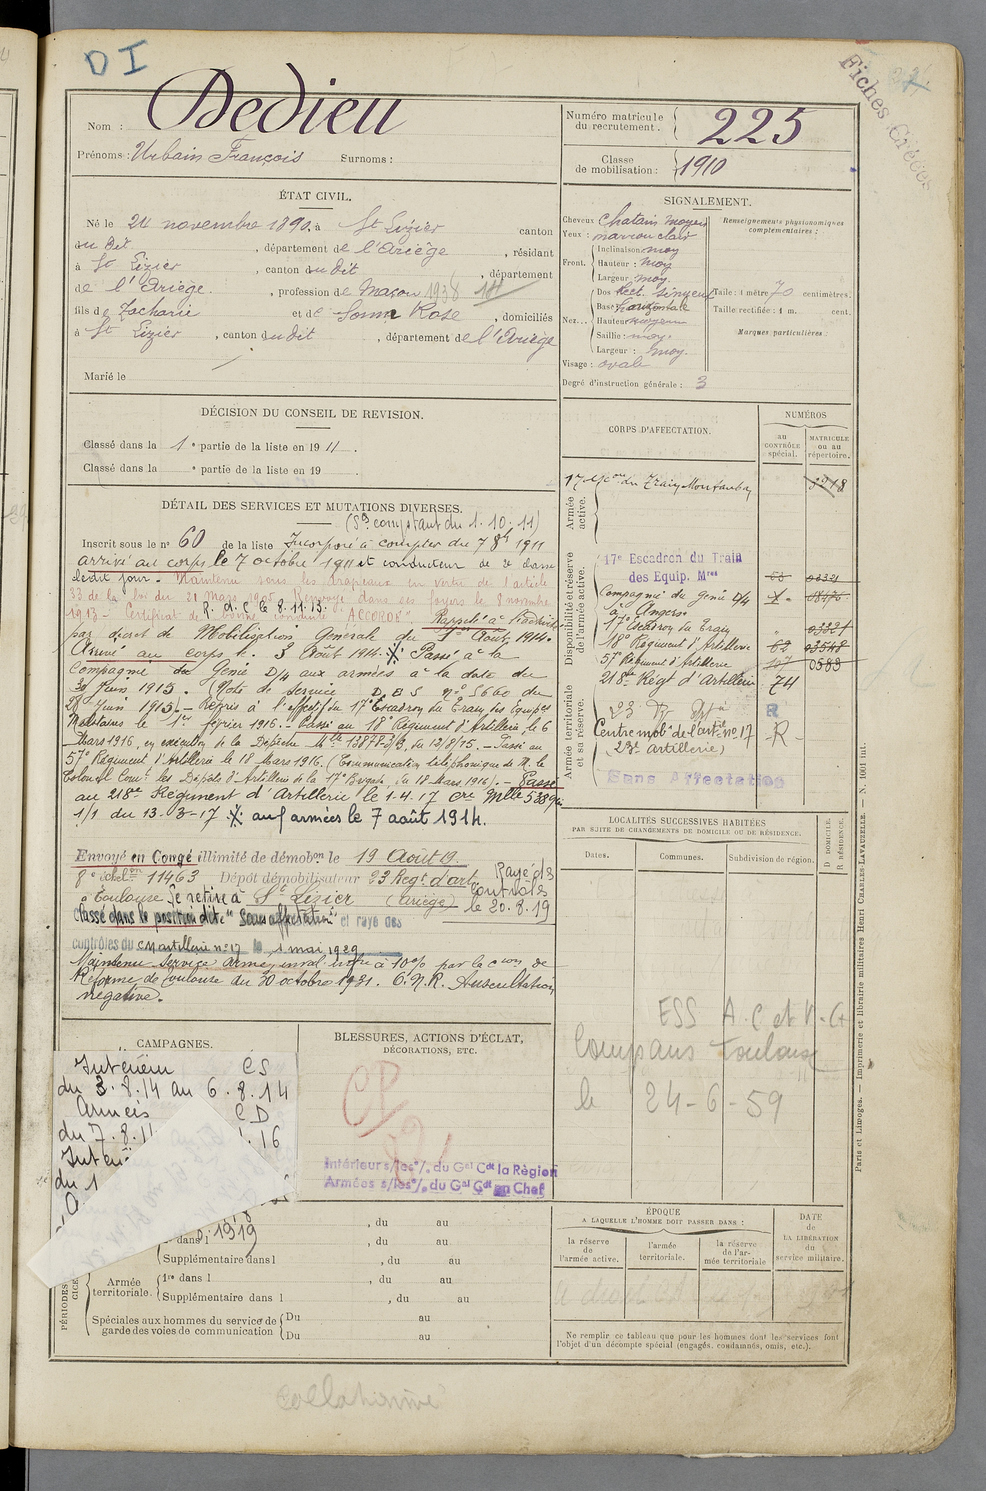 DI
Fiches Créées
Nom : Dedieu
Prénoms : Urbain François Surnoms :
Numéro matricule du recrutement. 225
Classe de mobilisation : 1910
ÉTAT CIVIL.
Né le 24 novembre 1890, à St Lizier canton
du dit, département de l'Ariège, résidant
à St Lizier, canton du dit, département
de l'Ariège, profession de Maçon 1938
fils de Zacharie et de Rose, domiciliés
à St Lizier, canton du dit, département de l'Ariège
Marié le
SIGNALEMENT.
Cheveux Chatain moyen
Yeux : marron clair
Front. Inclinaison moy
Hauteur : moy
Largeur moy.
Nez... Dos Rect. sinueux
Base horizontale
Hauteur moyenne
Saillie : moy.
Largeur : moy.
Visage : ovale
Degré d'instruction générale : 3
Renseignements physionomiques complémentaires :
Taille : 1 mètre 70 centimètres.
Taille rectifiée : 1 m. cent.
Marques particulières :
DÉCISION DU CONSEIL DE REVISION.
Classé dans la 1e partie de la liste en 1911.
Classé dans la e partie de la liste en 19 .
DÉTAIL DES SERVICES ET MUTATIONS DIVERSES.
(Sce comptant du 1.10.11)
Inscrit sous le no 60 de la liste Incorporé à compter du 7 8bre 1911
arrivé au corps le 7 octobre 1911 et conducteur de 2e classe
ledit jour. Maintenu sous les drapeaux en vertu de l'article
33 de la loi du 21 Mars 1905 Renvoyé dans ses foyers le 8 novembre
1913 - Certificat de bonne conduite ACCORDÉ. R. d. C le 8.11.13. Rappelé à l'activité
par décret de Mobilisation Générale du 1er Août 1914.
Arrivé au corps le 3 Août 1914. Passé à la
Compagnie du Génie D/4 aux armées à la date du
Juin 1915. (Note de Service no 5660 du
28 Juin 1915). Repris à l'effectif du 17e Escadron du Train des Equipages
Militaires le 1er février 1916. - Passé au 18e Régiment d'Artillerie le 6
Mars 1916, en exécution de la Dépêche Mlle 13878-3/3, du 12/8/15. - Passé au
57e Régiment d'Artillerie le 18 Mars 1916. (Communication téléphonique de M. le
Colonel Comt les Dépôts d'Artillerie de la 17e Région, du 18 Mars 1916). - Passé
au 218e Régiment d'Artillerie le 1.4.17
1/1 du 13-3-17 aux armées le 7 août 1914.
Envoyé en Congé illimité de démobon le 19 Août 19.
8e échelon 11463 Dépôt démobilisateur 23 Regt d'art
à Toulouse se retire à St Lizier (Ariège)
Rayé des Contrôles le 20.8.19
Classé dans la position dite "Sans affectation" et rayé des
contrôles du Cm artillerie no 17 le 1 mai 1929
Maintenu Service armé, inval. infre à 10% par la Con de
Réforme de Toulouse du 30 octobre 1931. Auscultation
négative.
CORPS D'AFFECTATION.
NUMÉROS
au contrôle spécial.
matricule ou au répertoire.
Armée active.
17e Escon du Train Montauban 3218
Disponibilité et réserve de l'armée active.
17e Escadron du Train
des Equip. Mres
Compagnie du Génie D/4
à Angers
17e Escadron du Train
18e Régiment d'Artillerie 62
57e Régiment d'Artillerie 107 0583
218e Régt d'Artillerie 74
Armée territoriale et sa réserve.
Centre mobr de l'artie no 17 R
(23e Artillerie)
Sans Affectation
LOCALITÉS SUCCESSIVES HABITÉES
PAR SUITE DE CHANGEMENTS DE DOMICILE OU DE RÉSIDENCE.
Dates. Communes. Subdivision de région. D. DOMICILE. R. RÉSIDENCE.
ESS A.C et V.G
Compans Toulouse
le 24-6-59
CAMPAGNES.
Intérieur CS
du 3.8.14 au 6.8.14
Armées CD
du 7.8.1
.16
du 1
1919
BLESSURES, ACTIONS D'ÉCLAT,
DÉCORATIONS, ETC.
Intérieur s/les o/. du Gal Cdt la Région
Armées s/les o/. du Gal Cdt en Chef
, du au
, du au
Supplémentaire dans l , du au
Armée territoriale. 1re dans l , du au
Supplémentaire dans l , du au
Spéciales aux hommes du service de garde des voies de communication
Du au
Du au
ÉPOQUE
A LAQUELLE L'HOMME DOIT PASSER DANS :
la réserve de l'armée active.
l'armée territoriale.
la réserve de l'armée territoriale
DATE DE LA LIBÉRATION du service militaire.
Ne remplir ce tableau que pour les hommes dont les services font
l'objet d'un décompte spécial (engagés, condamnés, omis, etc.).
Paris et Limoges. — Imprimerie et librairie militaires Henri CHARLES-LAVAUZELLE. — N. 1001 int.